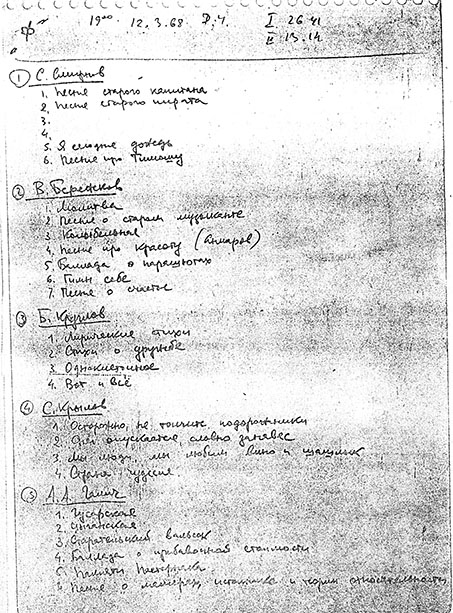 "Ф" 19⁰⁰ 12.3.68 Д.У. I 26 41
II 13.14
1 С. Смирнов
1. Песня старого капитана
2. Песня старого пирата
3.
4.
5. Я смотрю дождь
6. Песня про Тимошу
2 В. Бережков
1. Молитва
2 Песня о старом музыканте
3. Колыбельная
4. Песня про красоту (Анчаров)
5. Баллада о парашютах
6. Гимн себе
7. Песня о счастье
3 Б. Круглов
1. Лирические стихи
2. Стихи о дружбе
3. Одноклеточное
4. Вот и всё
4 С. Крылов
1. Осторожно, не топчите подорожники
2. опускается словно занавес
3. Мы люди, мы любим вино и шашлык
4. Страна чудесия.
5 А.А. Галич
1. Гусарская
2. Цыганская
3. Старательский вальсок
4. Баллада о прибавочной стоимости
5. Памяти Пастернака.
6. Песня о и теории относительности